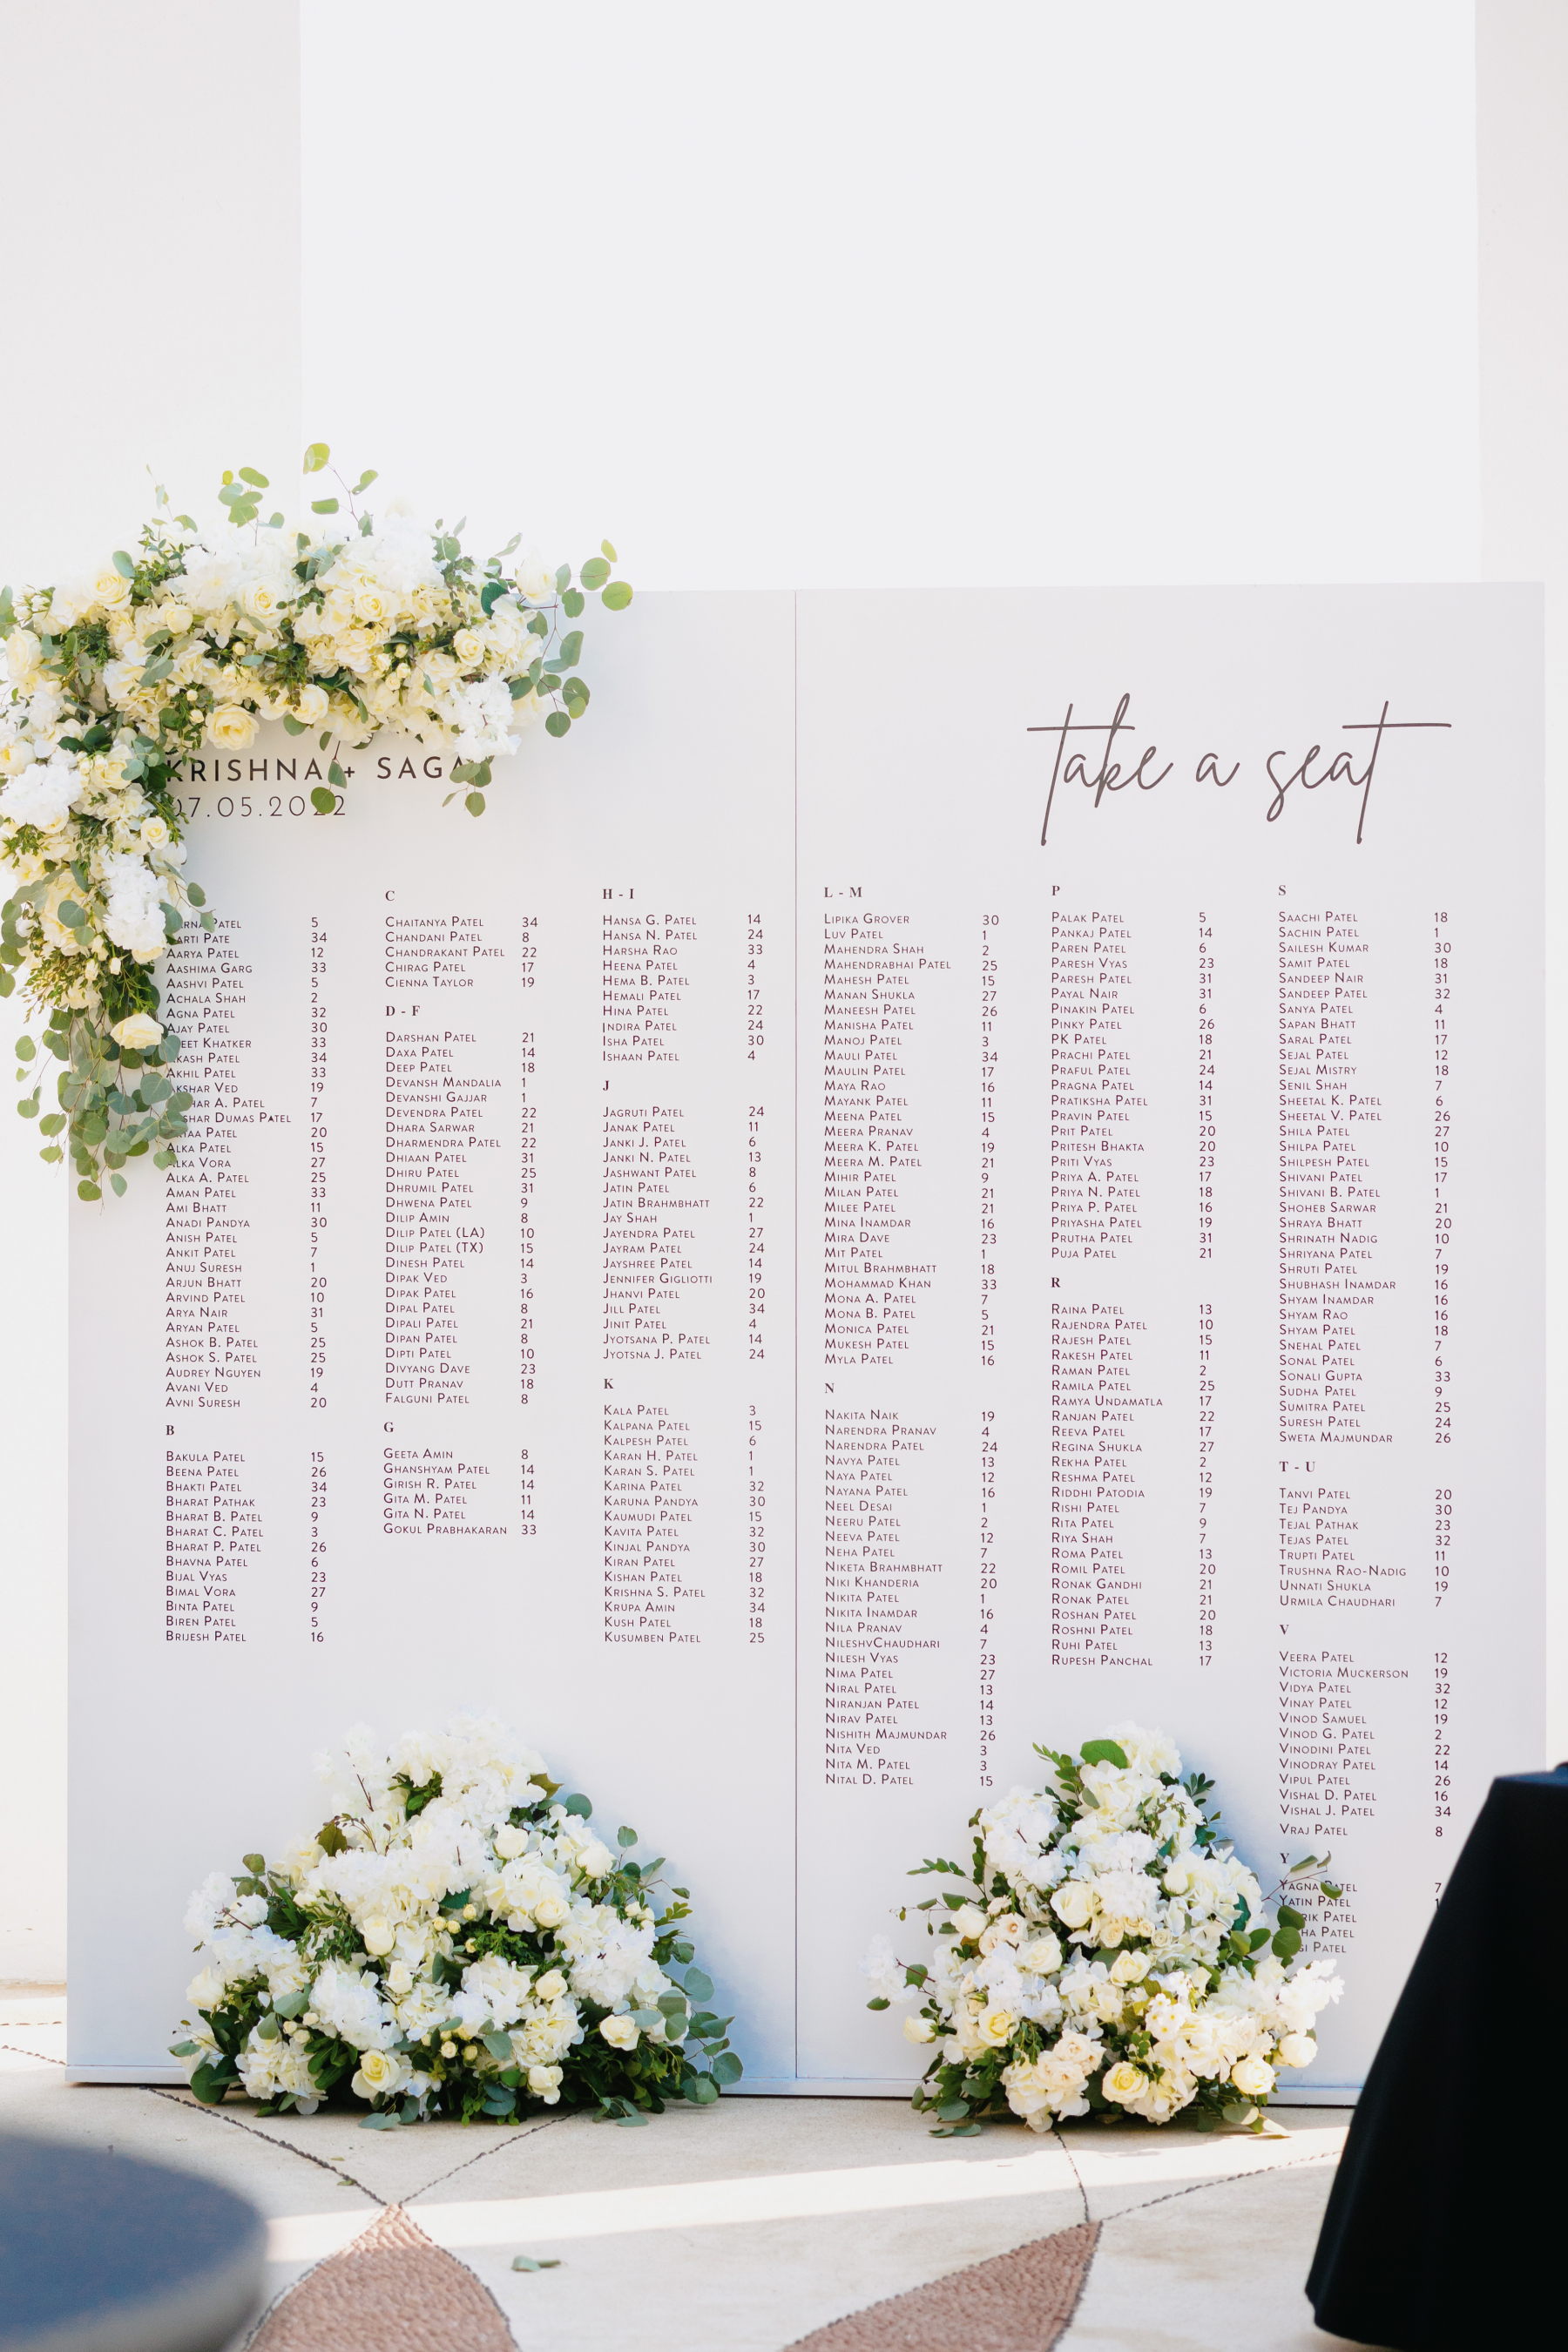 KRISHNA + SAGA
07.05.2022
take a seat
PATEL 5
AARTI PATE 34
AARYA PATEL 12
AASHIMA GARG 33
AASHVI PATEL 5
ACHALA SHAH 2
AGNA PATEL 32
AJAY PATEL 30
KHATKER 33
AKASH PATEL 34
AKHIL PATEL 33
AKSHAR VED 19
A. PATEL 7
DUMAS PATEL 17
PATEL 20
ALKA PATEL 15
ALKA VORA 27
ALKA A. PATEL 25
AMAN PATEL 33
AMI BHATT 11
ANADI PANDYA 30
ANISH PATEL 5
ANKIT PATEL 7
ANUJ SURESH 1
ARJUN BHATT 20
ARVIND PATEL 10
ARYA NAIR 31
ARYAN PATEL 5
ASHOK B. PATEL 25
ASHOK S. PATEL 25
AUDREY NGUYEN 19
AVANI VED 4
AVNI SURESH 20
B
BAKULA PATEL 15
BEENA PATEL 26
BHAKTI PATEL 34
BHARAT PATHAK 23
BHARAT B. PATEL 9
BHARAT C. PATEL 3
BHARAT P. PATEL 26
BHAVNA PATEL 6
BIJAL VYAS 23
BIMAL VORA 27
BINTA PATEL 9
BIREN PATEL 5
BRIJESH PATEL 16
C
CHAITANYA PATEL 34
CHANDANI PATEL 8
CHANDRAKANT PATEL 22
CHIRAG PATEL 17
CIENNA TAYLOR 19
D - F
DARSHAN PATEL 21
DAXA PATEL 14
DEEP PATEL 18
DEVANSH MANDALIA 1
DEVANSHI GAJJAR 1
DEVENDRA PATEL 22
DHARA SARWAR 21
DHARMENDRA PATEL 22
DHIAAN PATEL 31
DHIRU PATEL 25
DHRUMIL PATEL 31
DHWENA PATEL 9
DILIP AMIN 8
DILIP PATEL (LA) 10
DILIP PATEL (TX) 15
DINESH PATEL 14
DIPAK VED 3
DIPAK PATEL 16
DIPAL PATEL 8
DIPALI PATEL 21
DIPAN PATEL 8
DIPTI PATEL 10
DIVYANG DAVE 23
DUTT PRANAV 18
FALGUNI PATEL 8
G
GEETA AMIN 8
GHANSHYAM PATEL 14
GIRISH R. PATEL 14
GITA M. PATEL 11
GITA N. PATEL 14
GOKUL PRABHAKARAN 33
H - I
HANSA G. PATEL 14
HANSA N. PATEL 24
HARSHA RAO 33
HEENA PATEL 4
HEMA B. PATEL 3
HEMALI PATEL 17
HINA PATEL 22
INDIRA PATEL 24
ISHA PATEL 30
ISHAAN PATEL 4
J
JAGRUTI PATEL 24
JANAK PATEL 11
JANKI J. PATEL 6
JANKI N. PATEL 13
JASHWANT PATEL 8
JATIN PATEL 6
JATIN BRAHMBHATT 22
JAY SHAH 1
JAYENDRA PATEL 27
JAYRAM PATEL 24
JAYSHREE PATEL 14
JENNIFER GIGLIOTTI 19
JHANVI PATEL 20
JILL PATEL 34
JINIT PATEL 4
JYOTSANA P. PATEL 14
JYOTSNA J. PATEL 24
K
KALA PATEL 3
KALPANA PATEL 15
KALPESH PATEL 6
KARAN H. PATEL 1
KARAN S. PATEL 1
KARINA PATEL 32
KARUNA PANDYA 30
KAUMUDI PATEL 15
KAVITA PATEL 32
KINJAL PANDYA 30
KIRAN PATEL 27
KISHAN PATEL 18
KRISHNA S. PATEL 32
KRUPA AMIN 34
KUSH PATEL 18
KUSUMBEN PATEL 25
L - M
LIPIKA GROVER 30
LUV PATEL 1
MAHENDRA SHAH 2
MAHENDRABHAI PATEL 25
MAHESH PATEL 15
MANAN SHUKLA 27
MANEESH PATEL 26
MANISHA PATEL 11
MANOJ PATEL 3
MAULI PATEL 34
MAULIN PATEL 17
MAYA RAO 16
MAYANK PATEL 11
MEENA PATEL 15
MEERA PRANAV 4
MEERA K. PATEL 19
MEERA M. PATEL 21
MIHIR PATEL 9
MILAN PATEL 21
MILEE PATEL 21
MINA INAMDAR 16
MIRA DAVE 23
MIT PATEL 1
MITUL BRAHMBHATT 18
MOHAMMAD KHAN 33
MONA A. PATEL 7
MONA B. PATEL 5
MONICA PATEL 21
MUKESH PATEL 15
MYLA PATEL 16
N
NAKITA NAIK 19
NARENDRA PRANAV 4
NARENDRA PATEL 24
NAVYA PATEL 13
NAYA PATEL 12
NAYANA PATEL 16
NEEL DESAI 1
NEERU PATEL 2
NEEVA PATEL 12
NEHA PATEL 7
NIKETA BRAHMBHATT 22
NIKI KHANDERIA 20
NIKITA PATEL 1
NIKITA INAMDAR 16
NILA PRANAV 4
NILESHVCHAUDHARI 7
NILESH VYAS 23
NIMA PATEL 27
NIRAL PATEL 13
NIRANJAN PATEL 14
NIRAV PATEL 13
NISHITH MAJMUNDAR 26
NITA VED 3
NITA M. PATEL 3
NITAL D. PATEL 15
P
PALAK PATEL 5
PANKAJ PATEL 14
PAREN PATEL 6
PARESH VYAS 23
PARESH PATEL 31
PAYAL NAIR 31
PINAKIN PATEL 6
PINKY PATEL 26
PK PATEL 18
PRACHI PATEL 21
PRAFUL PATEL 24
PRAGNA PATEL 14
PRATIKSHA PATEL 31
PRAVIN PATEL 15
PRIT PATEL 20
PRITESH BHAKTA 20
PRITI VYAS 23
PRIYA A. PATEL 17
PRIYA N. PATEL 18
PRIYA P. PATEL 16
PRIYASHA PATEL 19
PRUTHA PATEL 31
PUJA PATEL 21
R
RAINA PATEL 13
RAJENDRA PATEL 10
RAJESH PATEL 15
RAKESH PATEL 11
RAMAN PATEL 2
RAMILA PATEL 25
RAMYA UNDAMATLA 17
RANJAN PATEL 22
REEVA PATEL 17
REGINA SHUKLA 27
REKHA PATEL 2
RESHMA PATEL 12
RIDDHI PATODIA 19
RISHI PATEL 7
RITA PATEL 9
RIYA SHAH 7
ROMA PATEL 13
ROMIL PATEL 20
RONAK GANDHI 21
RONAK PATEL 21
ROSHAN PATEL 20
ROSHNI PATEL 18
RUHI PATEL 13
RUPESH PANCHAL 17
S
SAACHI PATEL 18
SACHIN PATEL 1
SAILESH KUMAR 30
SAMIT PATEL 18
SANDEEP NAIR 31
SANDEEP PATEL 32
SANYA PATEL 4
SAPAN BHATT 11
SARAL PATEL 17
SEJAL PATEL 12
SEJAL MISTRY 18
SENIL SHAH 7
SHEETAL K. PATEL 6
SHEETAL V. PATEL 26
SHILA PATEL 27
SHILPA PATEL 10
SHILPESH PATEL 15
SHIVANI PATEL 17
SHIVANI B. PATEL 1
SHOHEB SARWAR 21
SHRAYA BHATT 20
SHRINATH NADIG 10
SHRIYANA PATEL 7
SHRUTI PATEL 19
SHUBHASH INAMDAR 16
SHYAM INAMDAR 16
SHYAM RAO 16
SHYAM PATEL 18
SNEHAL PATEL 7
SONAL PATEL 6
SONALI GUPTA 33
SUDHA PATEL 9
SUMITRA PATEL 25
SURESH PATEL 24
SWETA MAJMUNDAR 26
T - U
TANVI PATEL 20
TEJ PANDYA 30
TEJAL PATHAK 23
TEJAS PATEL 32
TRUPTI PATEL 11
TRUSHNA RAO-NADIG 10
UNNATI SHUKLA 19
URMILA CHAUDHARI 7
V
VEERA PATEL 12
VICTORIA MUCKERSON 19
VIDYA PATEL 32
VINAY PATEL 12
VINOD SAMUEL 19
VINOD G. PATEL 2
VINODINI PATEL 22
VINODRAY PATEL 14
VIPUL PATEL 26
VISHAL D. PATEL 16
VISHAL J. PATEL 34
VRAJ PATEL 8
Y
YAGNA PATEL 7
YATIN PATEL
PATEL
PATEL
PATEL